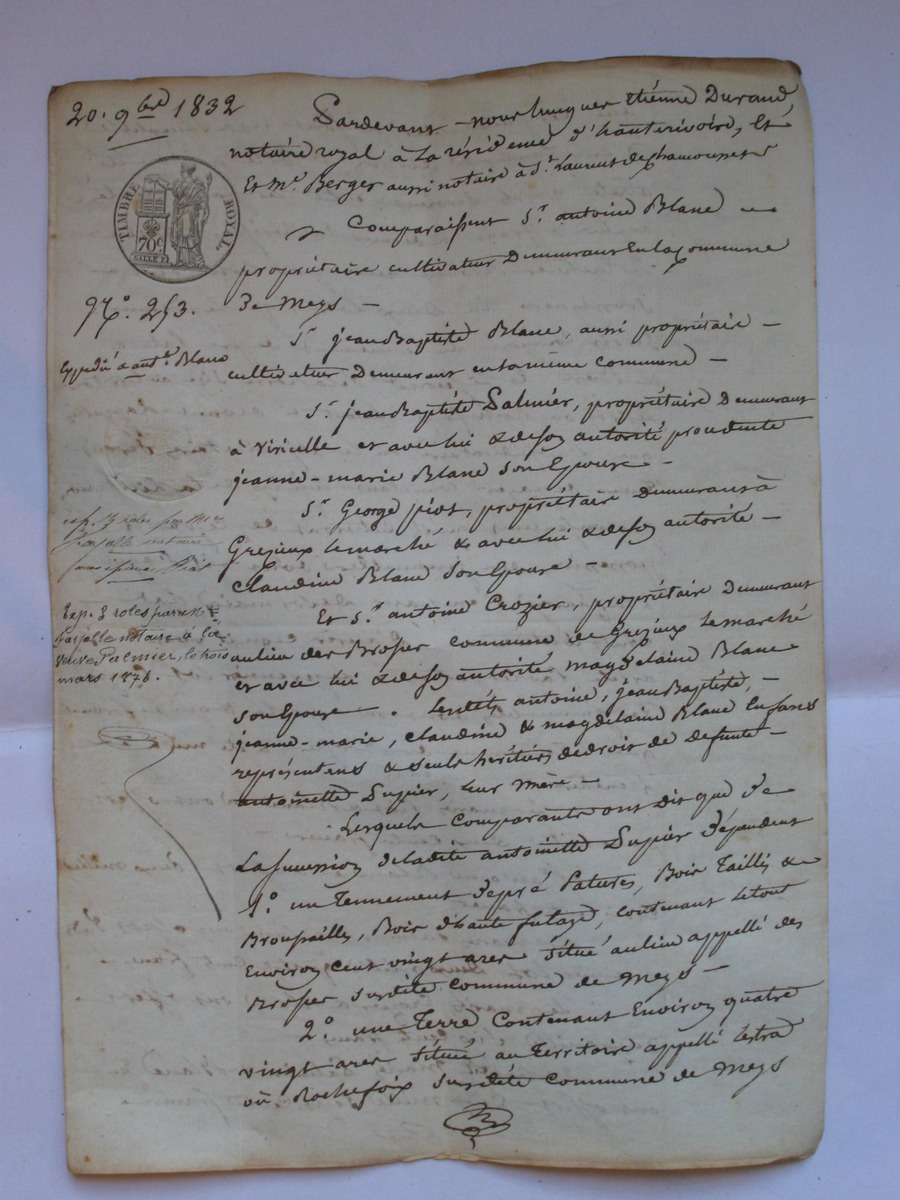 20. 9bre 1832
TIMBRE ROYAL
70c
N.o 253.
Expédié à ant.e Blanc
exp. 3 roles par Me
notaire
Exp. 3 roles par Me
notaire à la
veuve Palmier, le trois
mars 1876.
Pardevant nous Durand,
notaire royal à la résidence d'hauterivoire, Et
Et Me. Berger aussi notaire à St. Laurent de chamousset
Comparaissent Sr. antoine Blanc
propriétaire cultivateur Demeurant En la Commune
De Meys
Sr. jean Baptiste Blanc, aussi propriétaire
cultivateur Demeurant en la même Commune
Sr. jean Baptiste Palmier, propriétaire Demeurant
à viricelle et avec lui & de son autorité procédente
jeanne-marie Blanc son Epouse
Sr. George piot, propriétaire Demeurant à
Grezieux le marché & avec lui & de son autorité
Claudine Blanc son Epouse
Et Sr. antoine Crozier, propriétaire Demeurant
au lieu des Brosses commune de Grezieux le marché
et avec lui & de son autorité magdelaine Blanc
son Epouse. Lesdits antoine, jean Baptiste,
jeanne-marie, Claudine & magdelaine Blanc Enfans
représentans & seuls héritiers de droit de defunte
antoinette Dupier, leur mère
Lesquels Comparants ont Dit que De
La succession de ladite antoinette Dupier Dépendent
1.o un Tennement De pré Patures, Bois Taillis &
Broussailles, Bois d'haute futaye, contenant le tout
Environ cent vingt ares situé au lieu appellé des
Brosses susdite commune de Meys
2.o une Terre Contenant Environ quatre
vingt ares situé au Territoire appellé Lestra
ou Rochefoix susdite commune de Meys